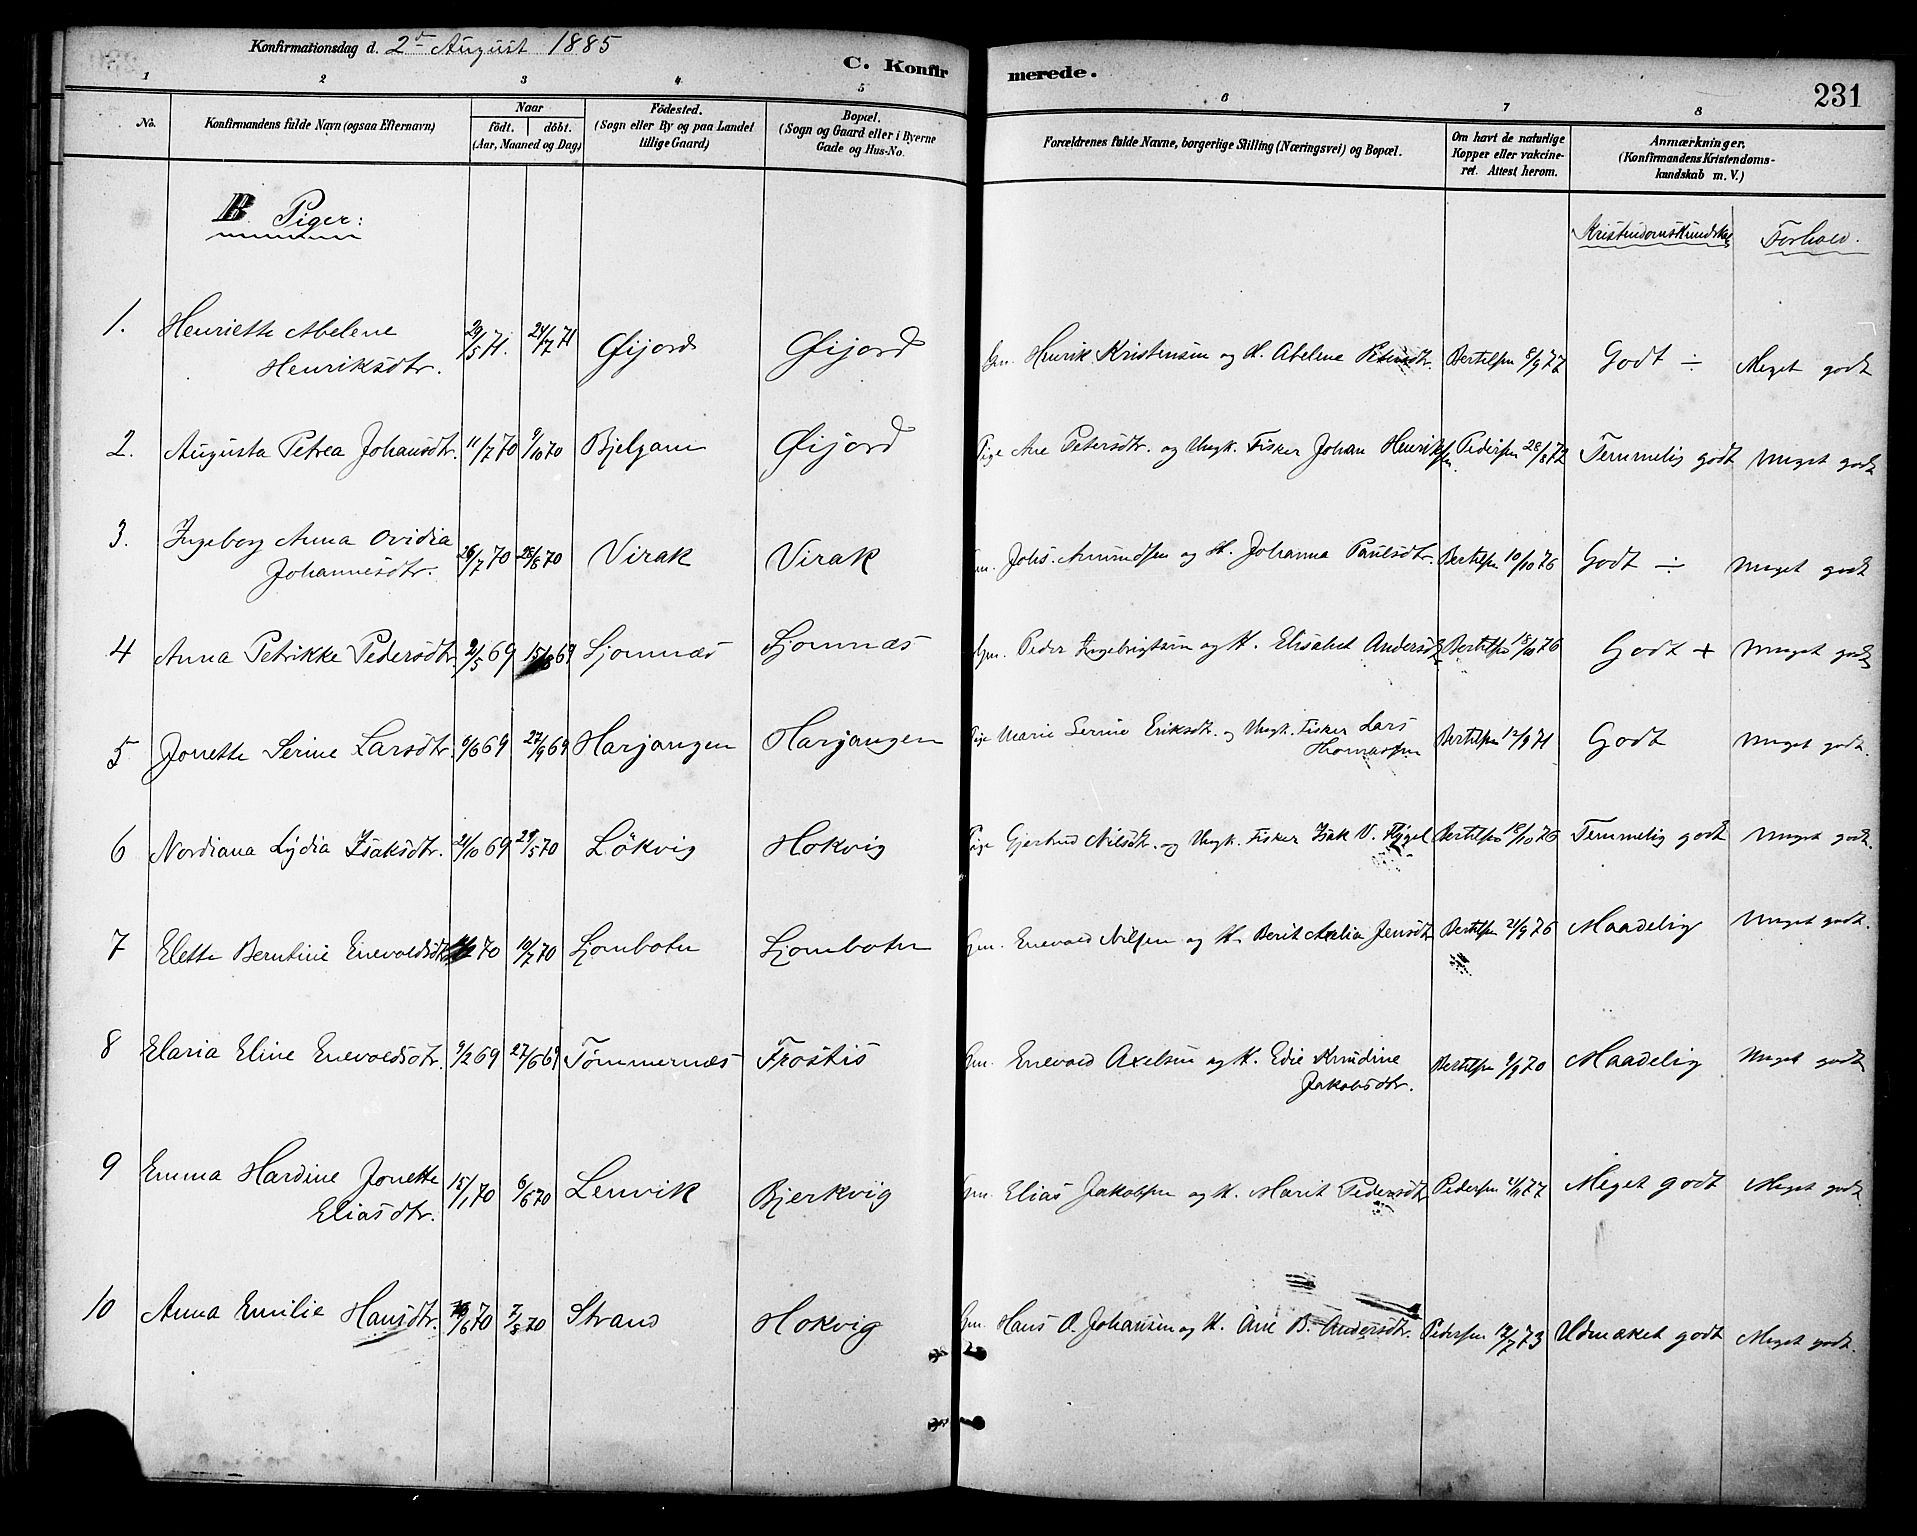 Konfirmationsdag d. 2den August 1885
C. Konfirmerede.
231
1 2 3 4 5 6 7 8
No. | Konfirmandens fulde Navn (ogsaa Efternavn) | Naar födt. döbt. (Aar, Maaned og Dag) | Födested. (Sogn eller By og paa Landet tillige Gaard) | Bopæl. (Sogn og Gaard eller i Byerne Gade og Hus-No. | Forældrenes fulde Navne, borgerlige Stilling (Næringsvei) og Bopæl. | Om havt de naturlige Kopper eller vakcineret. Attest herom. | Anmærkninger. (Konfirmandens Kristendomskundskab m. V.)
B. Piger:
Kristendomskundskab Forhold.
1. Henriette Abelene Henriksdtr. 29/5 71. 24/7 71 Øijord Øijord Gm. Henrik Kristensen og H. Abelene Petersdtr. Bertelsen 8/9 77 Godt ÷ Meget godt
2. Augusta Petrea Johansdtr. 11/7 70 9/10 70 Bjelgam Øijord Pige Ane Petersdtr. og Ungk. Fisker Johan Henriksen Pedersen 28/8 72 Temmelig godt Meget godt
3. Ingeborg Anna Ovidia Johannesdtr. 26/7 70 28/8 70 Virak Virak Gm. Johs. Amundsen og H. Johanna Paulsdtr. Bertelsen 10/10 76 Godt ÷ Meget godt
4 Anna Petrikke Pedersdtr. 2/5 69 15/8 69 Ljomnæs Ljomnæs Gm. Peder Ingebrigtsen og H. Elisabet Andersdtr Bertelsen 18/10 76 Godt + Meget godt
5 Jonette Serine Larsdtr. 9/6 69 27/9 69 Harjangen Harjangen Pige Marie Serine Eriksdtr. og Ungk. Fisker Lars Thomassen Bertelsen 12/9 71 Godt Meget godt.
6 Nordiana Lydia Isaksdtr. 21/10 69 29/5 70 Lökvig Hokvig Pige Gjertrud Nilsdtr. og Ungk. Fisker Isak V. Flygel Bertelsen 18/10 76 Temmelig godt Meget godt.
7 Elette Berntine Enevoldsdtr. 70 10/7 70 Ljombotn Ljombotn Gm. Enevold Nilsen og H. Berit Jensdtr Bertelsen 21/9 76 Maadelig Meget godt.
8 Elaria Eline Enevoldsdtr. 9/2 69 27/6 69 Tömmernæs Frostis Gm. Enevold Axelsen og H. Edie Knudine Jakobsdtr. Bertelsen 9/9 70 Maadelig Meget godt
9 Emma Hardine Jonette Eliasdtr. 15/1 70 6/6 70 Lenvik Bjerkvig Gm. Elias Jakobsen og H. Marit Pedersdtr Pedersen 77 Meget godt Meget godt
10 Anna Emilie Hansdtr. 70 7/8 70 Strand Hokvig Gm. Hans O. Johansen og H. Ane B. Andersdtr. Pedersen 12/7 73 Udmæket godt Meget godt.